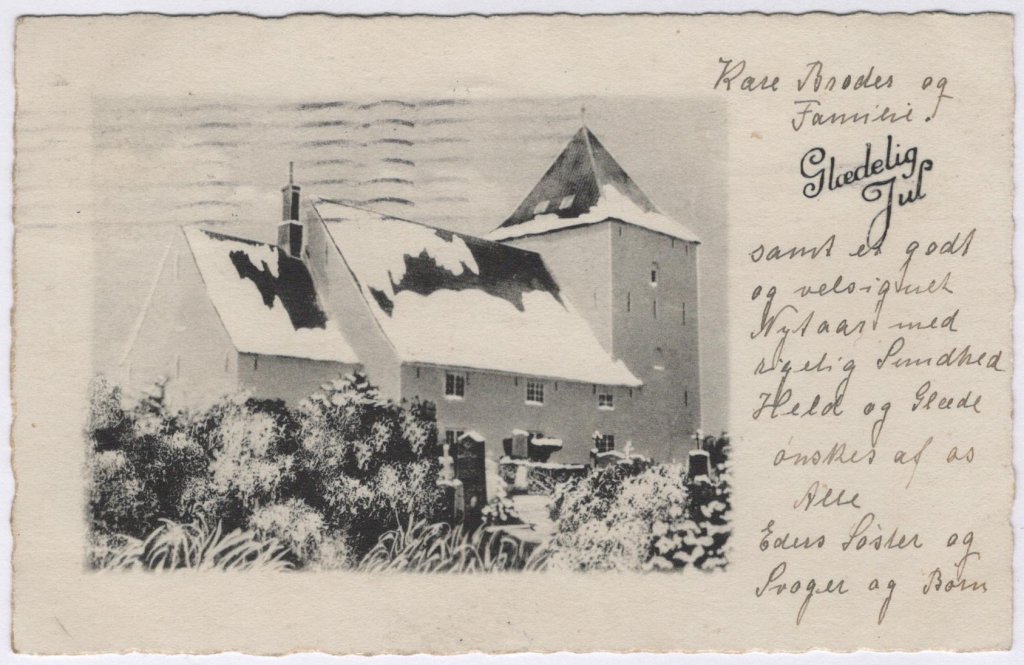 Kære Broder og
Familie.
Glædelig
Jul
samt et godt
og velsignet
Nytaar med
rigelig Sundhed
Held og Glæde
ønskes af os
Alle
Eders Søster og
Svoger og Børn